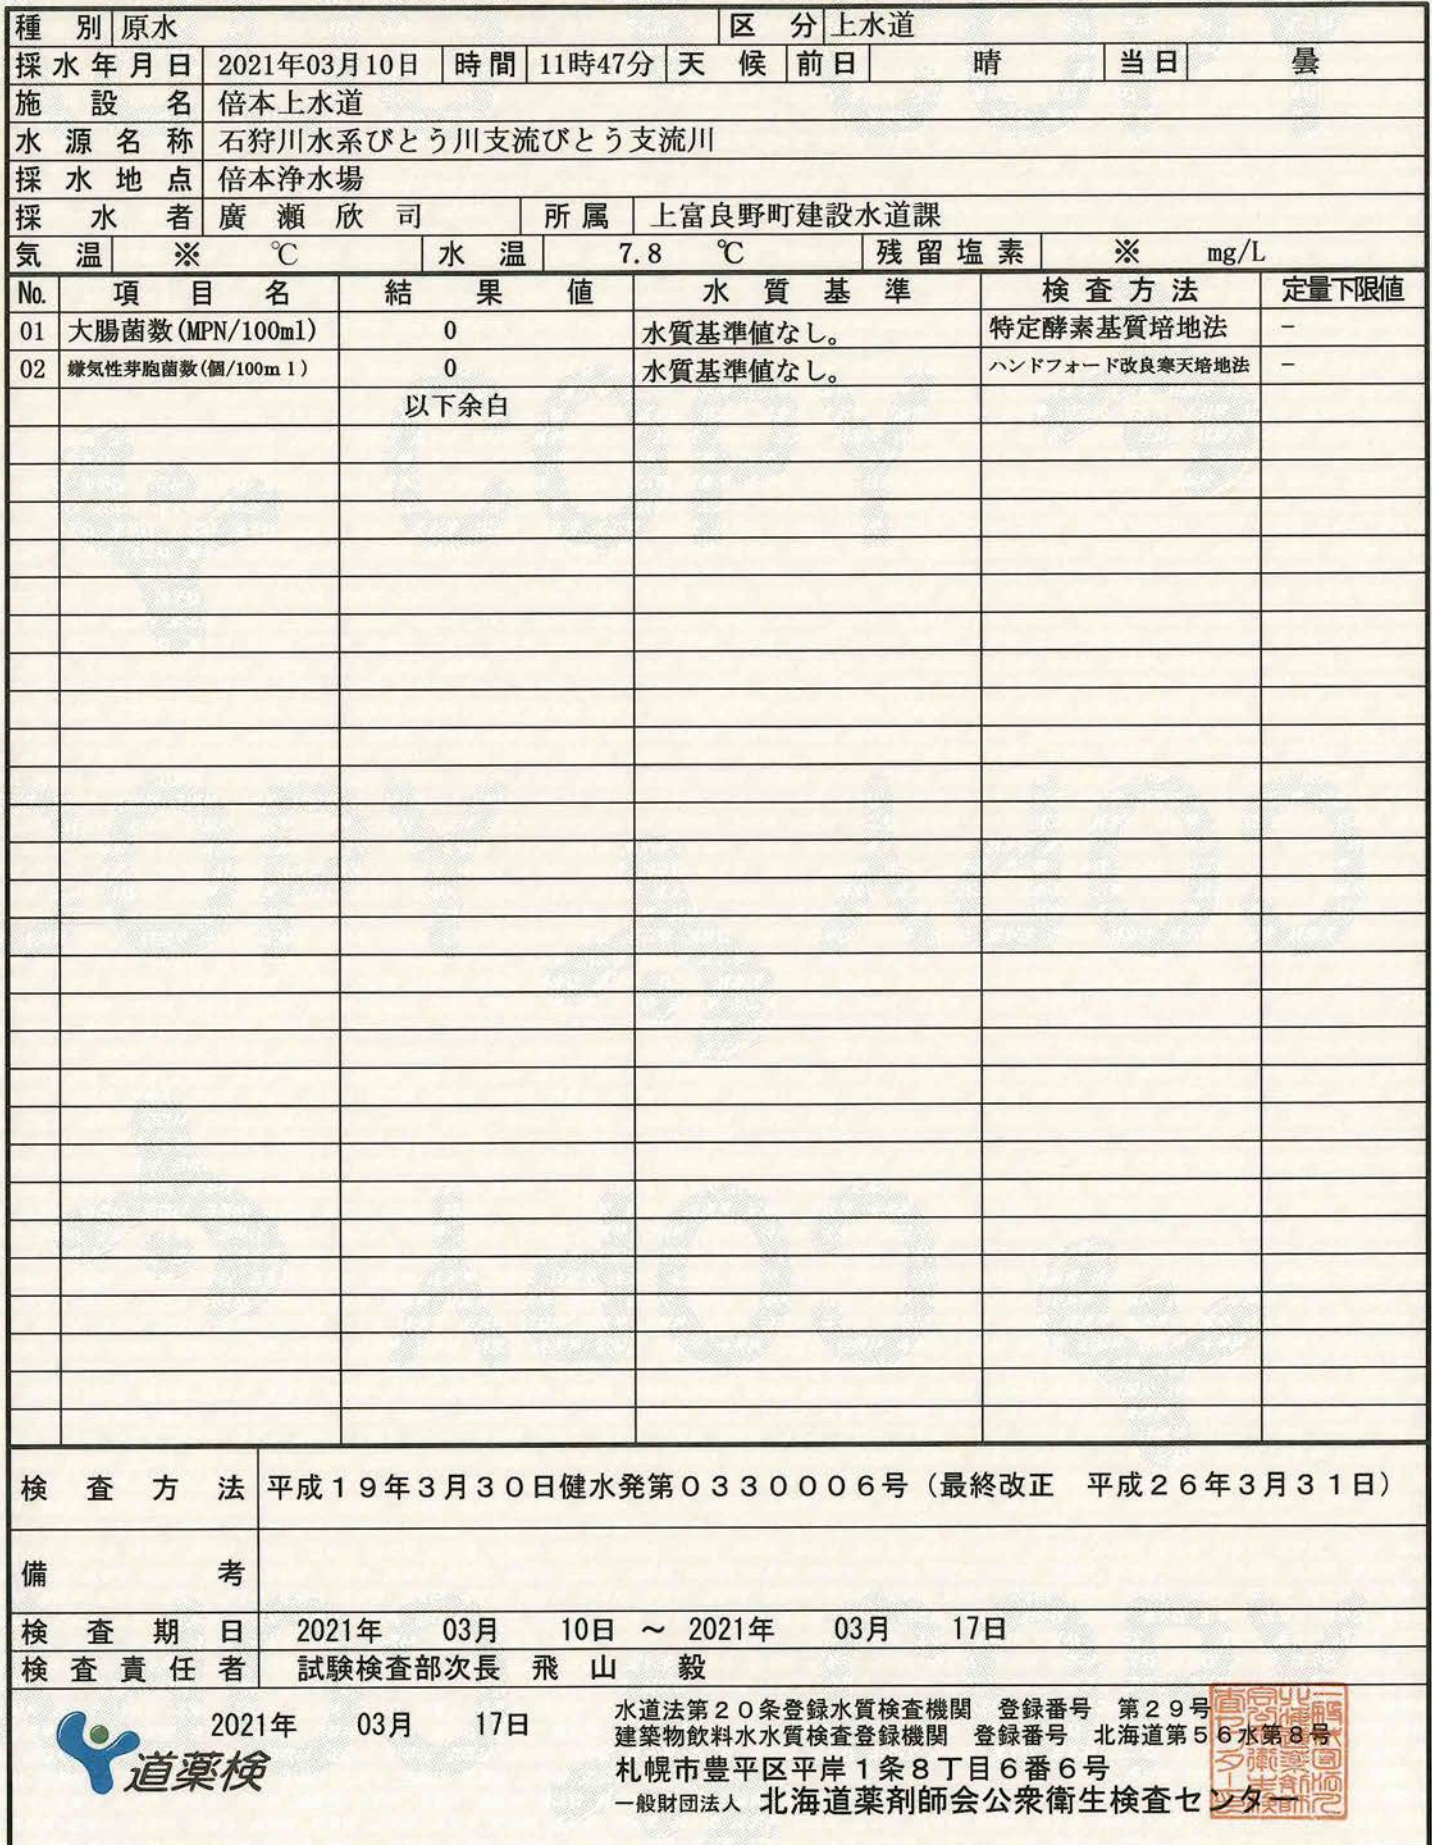 種別 原水 区分 上水道
採水年月日 2021年03月10日 時間 11時47分 天候 前日 晴 当日 曇
施設名 倍本上水道
水源名称 石狩川水系びとう川支流びとう支流川
採水地点 倍本浄水場
採水者 廣瀬欣司 所属 上富良野町建設水道課
気温 ※ ℃ 水温 7.8 ℃ 残留塩素 ※ mg/L
No. 項目名 結果値 水質基準 検査方法 定量下限値
01 大腸菌数(MPN/100ml) 0 水質基準値なし。 特定酵素基質培地法 −
02 嫌気性芽胞菌数(個/100ml) 0 水質基準値なし。 ハンドフォード改良寒天培地法 −
以下余白
検査方法 平成19年3月30日健水発第0330006号（最終改正 平成26年3月31日）
備考
検査期日 2021年 03月 10日 ～ 2021年 03月 17日
検査責任者 試験検査部次長 飛山 毅
2021年 03月 17日
道薬検
水道法第20条登録水質検査機関 登録番号 第29号
建築物飲料水水質検査登録機関 登録番号 北海道第56水第8号
札幌市豊平区平岸1条8丁目6番6号
一般財団法人 北海道薬剤師会公衆衛生検査センター
COPY
COPY
COPY
COPY